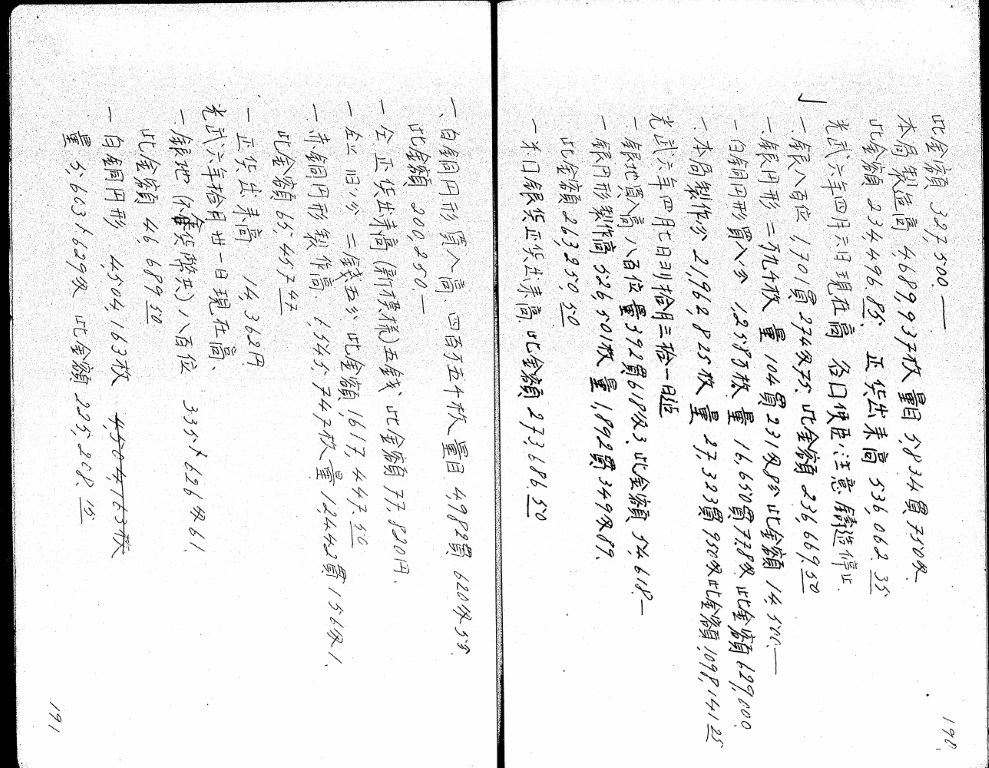 此金額 327,500.—
本局製造高 4,689,937枚 量目 5,834貫750匁
此金額 234,496.85 正貨出来高 536,062.35
光武六年四月六日現在高 各口使臣ノ注意 鑄造停止
一銀八百位 1,701貫274匁75 此金額 236,669.50
一、銀円形 二九4枚 量 104貫231匁8分 此金額 14,500.—
一白銅円形買入分 1,258万枚 量 16,650貫778匁 此金額 629,000.
一、本局製作分 21,962,825枚 量 27,323貫950匁 此金額 1,098,141.25
光武六年四月七日ヨリ拾月三拾一日迄
一銀地買入高 八百位 量392貫618匁3 此金額 54,618—
一銀円形製作高 526,501枚 量 1,892貫349匁89.
此金額 263,250,50
一半口銀貨正貨出来高 此金額 273,686.50
190
一、白銅円形買入高 四百万五千枚 量目 4,982貫620匁55.
此金額 200,250.—
一仝正貨出来高(新模様)五銭 此金額 77,820円.
一仝 旧分 二銭五分 此金額 1,617,447.50
一赤銅円形製作高. 6,545,747枚 量 12,442貫156匁1.
此金額 65,457.47
一正貨出来高 14,362円
光武六年拾月卅一日現在高、
一銀地 八百位 335〆626匁61.
此金額 46,689.50
一白銅円形 4,504,163枚 4,504,163枚
量 5,603〆629匁 此金額 225,208.15
191